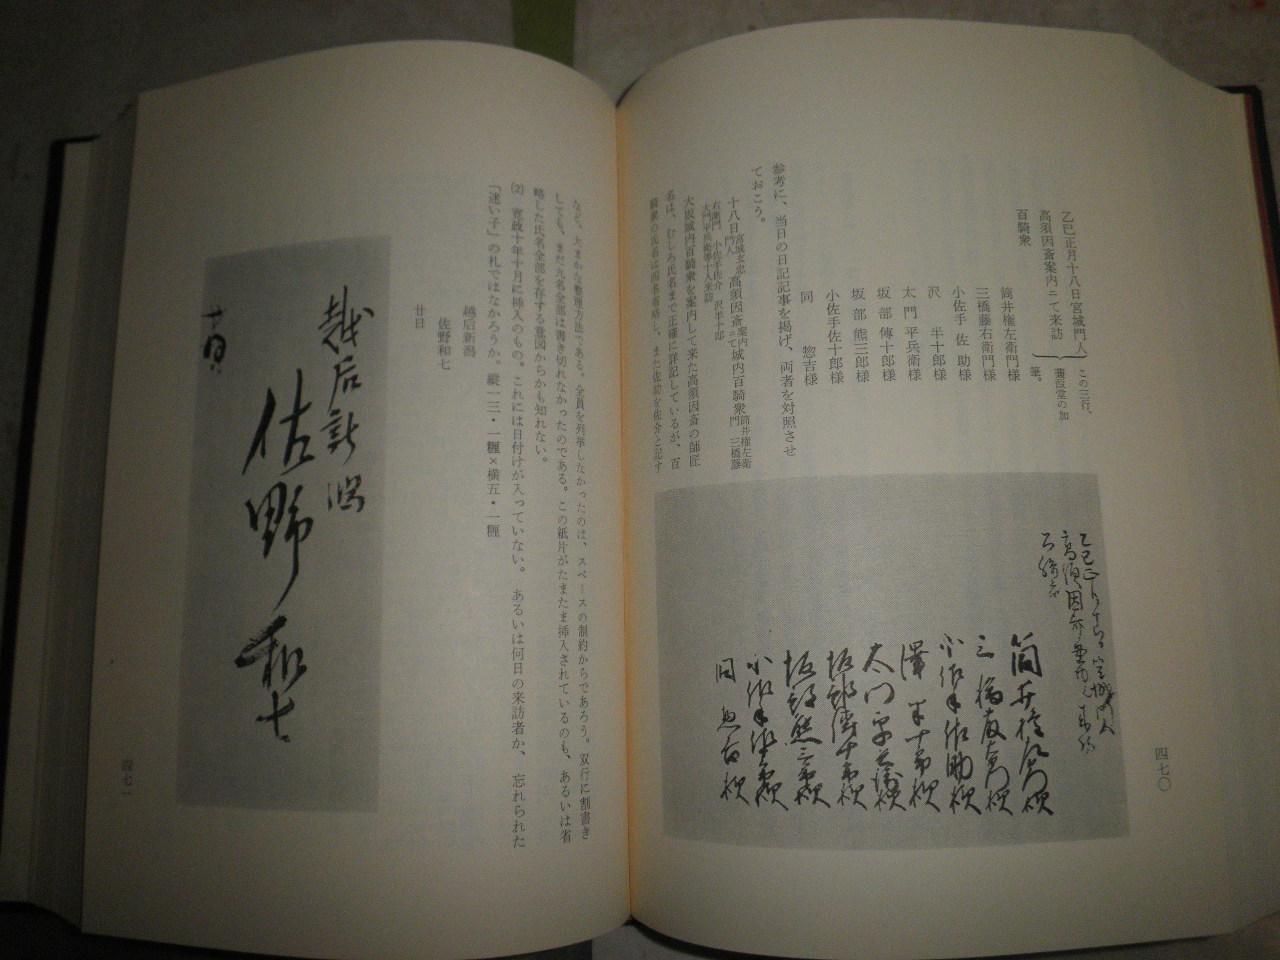 乙巳正月十八日宮城門人
高須因斎案内ニて来訪
百騎衆
この三行、
蒹葭堂の加
筆。
筒井権左衛門様
三橋藤右衛門様
小佐手 佐助様
沢 半十郎様
太門 平兵衛様
坂部 傳十郎様
坂部 熊三郎様
小佐手佐十郎様
同 惣吉様
参考に、当日の日記記事を掲げ、両者を対照させ
ておこう。
十八日門人 宮城玄忠 高須因斎案内ニて城内百騎衆筒井権左衛門 三橋藤
右衛門 小佐手佐介 沢半十郎
太門平兵衛等十人来訪
大坂城内百騎衆を案内して来た高須因斎の師匠
名は、むしろ氏名まで正確に詳記しているが、百
騎衆の氏名は両名省略し、また佐助を佐介と記す
四七〇
乙巳正月十八日宮城門人
高須因斎案内ニて来訪
百騎衆
筒井権左衛門様
三橋藤右衛門様
小佐手佐助様
澤半十郎様
太門平兵衛様
坂部傳十郎様
坂部熊三郎様
小佐手佐十郎様
同 惣吉様
など、大まかな整理方法である。全員を列挙しなかったのは、スペースの制約からであろう。双行に割書き
しても、まだ九名全部は書き切れなかったのである。この紙片がたまたま挿入されているのも、あるいは省
略した氏名全部を存する意図からかも知れない。
(2) 寛政十年十月に挿入のもの。これには日付けが入っていない。あるいは何日の来訪者か、忘れられた
「迷い子」の札ではなかろうか。縦一三・一糎×横五・一糎
越后新潟
佐野和七
廿日
越后新潟
佐野和七
廿日
四七一